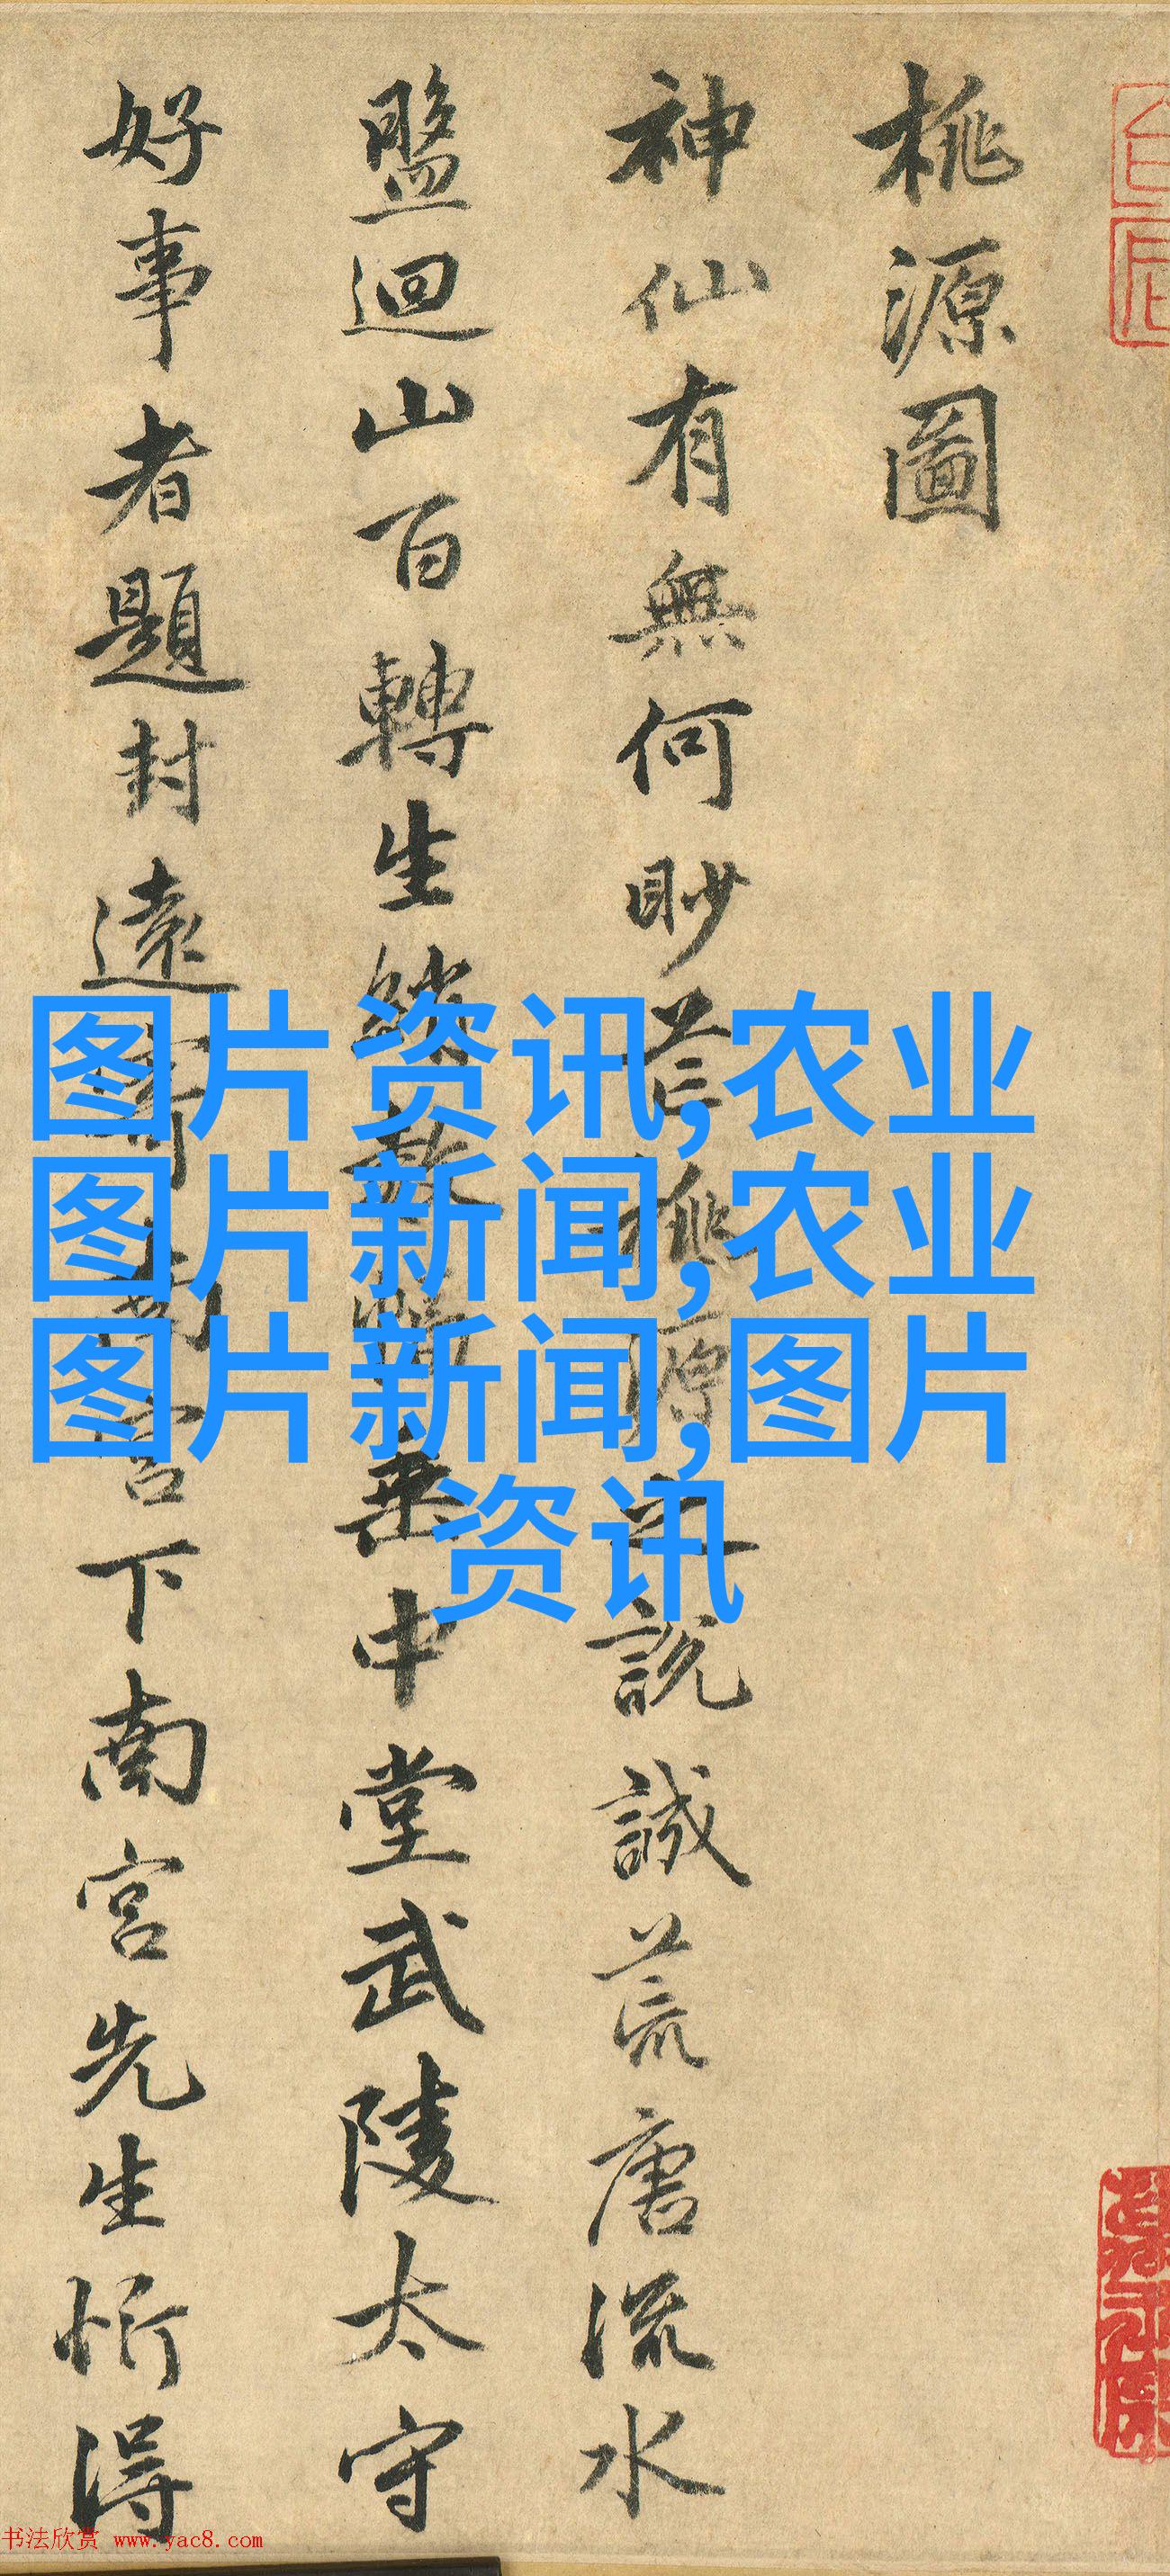 桃源圖
神仙有無何眇芒桃源之說誠荒唐流水
盤迴山百轉生綃數幅垂中堂武陵太守
好事者題封遠寄南宮下南宮先生忻得
图片资讯,农业
图片新闻,农业
图片新闻,图片
资讯
书法欣赏 www.yac8.com